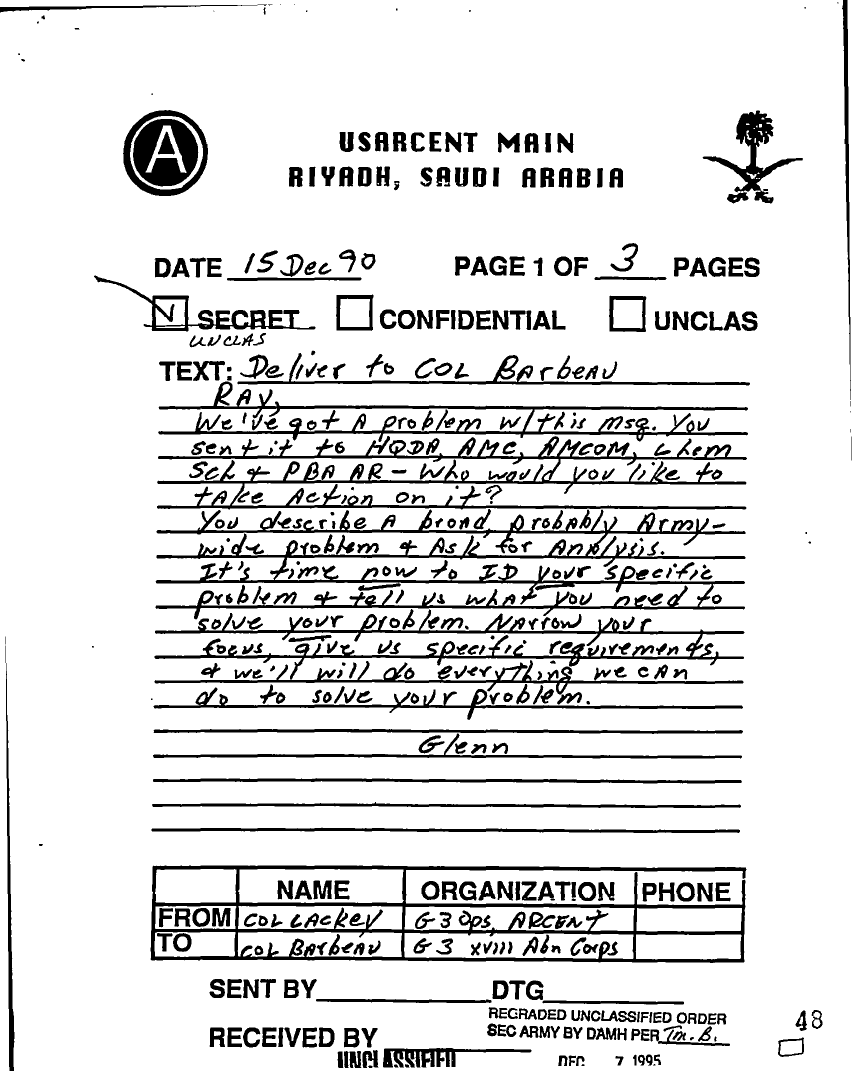 A
USARCENT MAIN
RIYADH, SAUDI ARABIA
DATE 15 Dec 90 PAGE 1 OF 3 PAGES
✓ SECRET ☐ CONFIDENTIAL ☐ UNCLAS
UNCLAS
TEXT: Deliver to COL Barbeau
RAY,
We've got a problem w/this msg. You
sent it to HQDA, AMC, AMCOM, Chem
Sch & PBA AR - Who would you like to
take Action on it?
You describe a broad, probably Army-
wide problem & Ask for Analysis.
It's time now to ID your specific
problem & tell us what you need to
solve your problem. Narrow your
focus, give us specific requirements,
& we'll will do everything we can
do to solve your problem.
Glenn
NAME ORGANIZATION PHONE
FROM COL LACKEY G3 Ops, ARCENT
TO COL Barbeau G3 XVIII Abn Corps
SENT BY DTG
REGRADED UNCLASSIFIED ORDER
RECEIVED BY SEC ARMY BY DAMH PER Tm. B.
48
UNCLASSIFIED DEC 7 1995